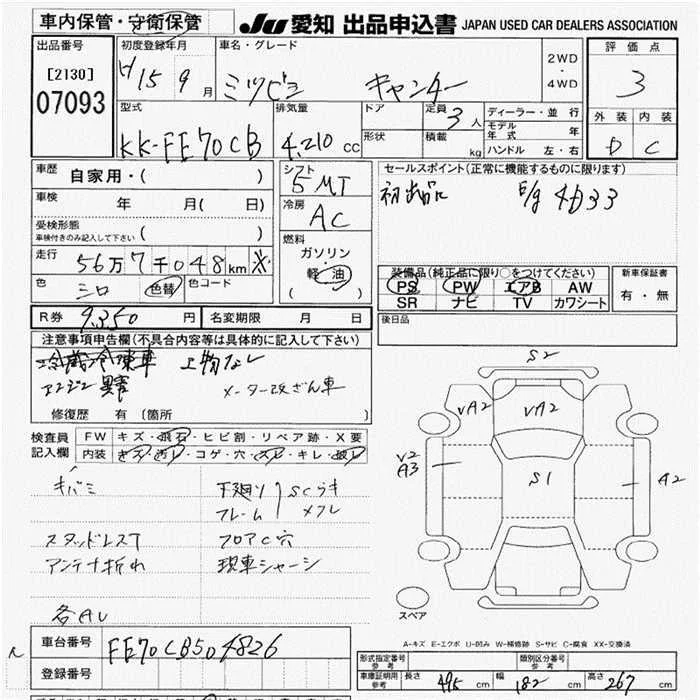 車内保管・守衛保管
JU 愛知 出品申込書 JAPAN USED CAR DEALERS ASSOCIATION
出品番号
[2130]
07093
初度登録年月
H15 9 月
車名・グレード
ミツビシ キャンター
2WD
・
4WD
評価点
3
外装 内装
D C
型式
KK-FE70CB
排気量
4,210 cc
ドア
形状
定員 3 人
積載 kg
ディーラー・並行
モデル年式 年
ハンドル 左・右
車歴
自家用・( )
車検
年 月( 日)
受検形態
車検付きのみ記入して下さい ( )
走行
56万7千048km ※
色
シロ
色替
色コード
シフト
5MT
冷房
AC
燃料
ガソリン・
軽油
( )
セールスポイント(正常に機能するものに限ります)
初出品に E/g 4D33
装備品(純正品に限り○をつけてください)
PS PW エアB AW
SR ナビ TV カワシート
新車保証書
有・無
後日品
R券 9,350 円
名変期限 月 日
注意事項申告欄(不具合内容等は具体的に記入して下さい)
冷蔵冷凍車 上物なし
エンジン異音
メーター改ざん車
修復歴 有 (箇所 )
検査員
記入欄
FW キズ・飛石・ヒビ割・リペア跡・X要
内装 キズ・汚レ・コゲ・穴・スレ・キレ・破レ
キバミ
下廻り
フレーム
SCラキ
メフレ
スタッドレスT
フロアC穴
アンテナ折れ
現車シャーシ
各AU
S2
VA2
VA2
V2
A3
S1
A2
スペア
A-キズ E-エクボ U-凹み W-補修跡 S-サビ C-腐食 XX-交換済
車台番号
FE70CB504826
登録番号
形式指定番号
参考
類別区分番号
参考
車庫証明用
参考
長さ 495 cm 幅 182 cm 高さ 267 cm